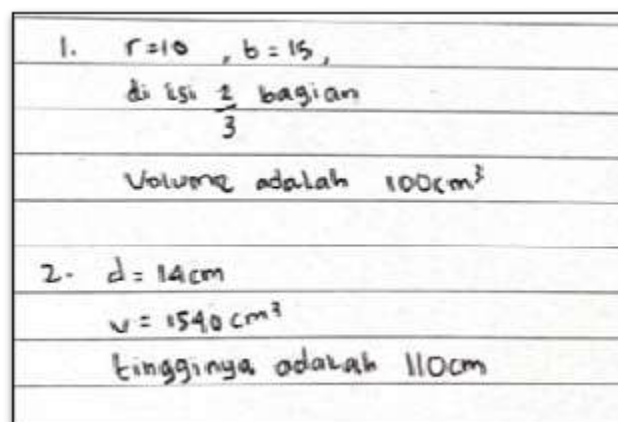 1. r=10 , b=15,
di isi 2/3 bagian
Volume adalah 100cm³
2. d = 14cm
v = 1540 cm³
tingginya adalah 110cm